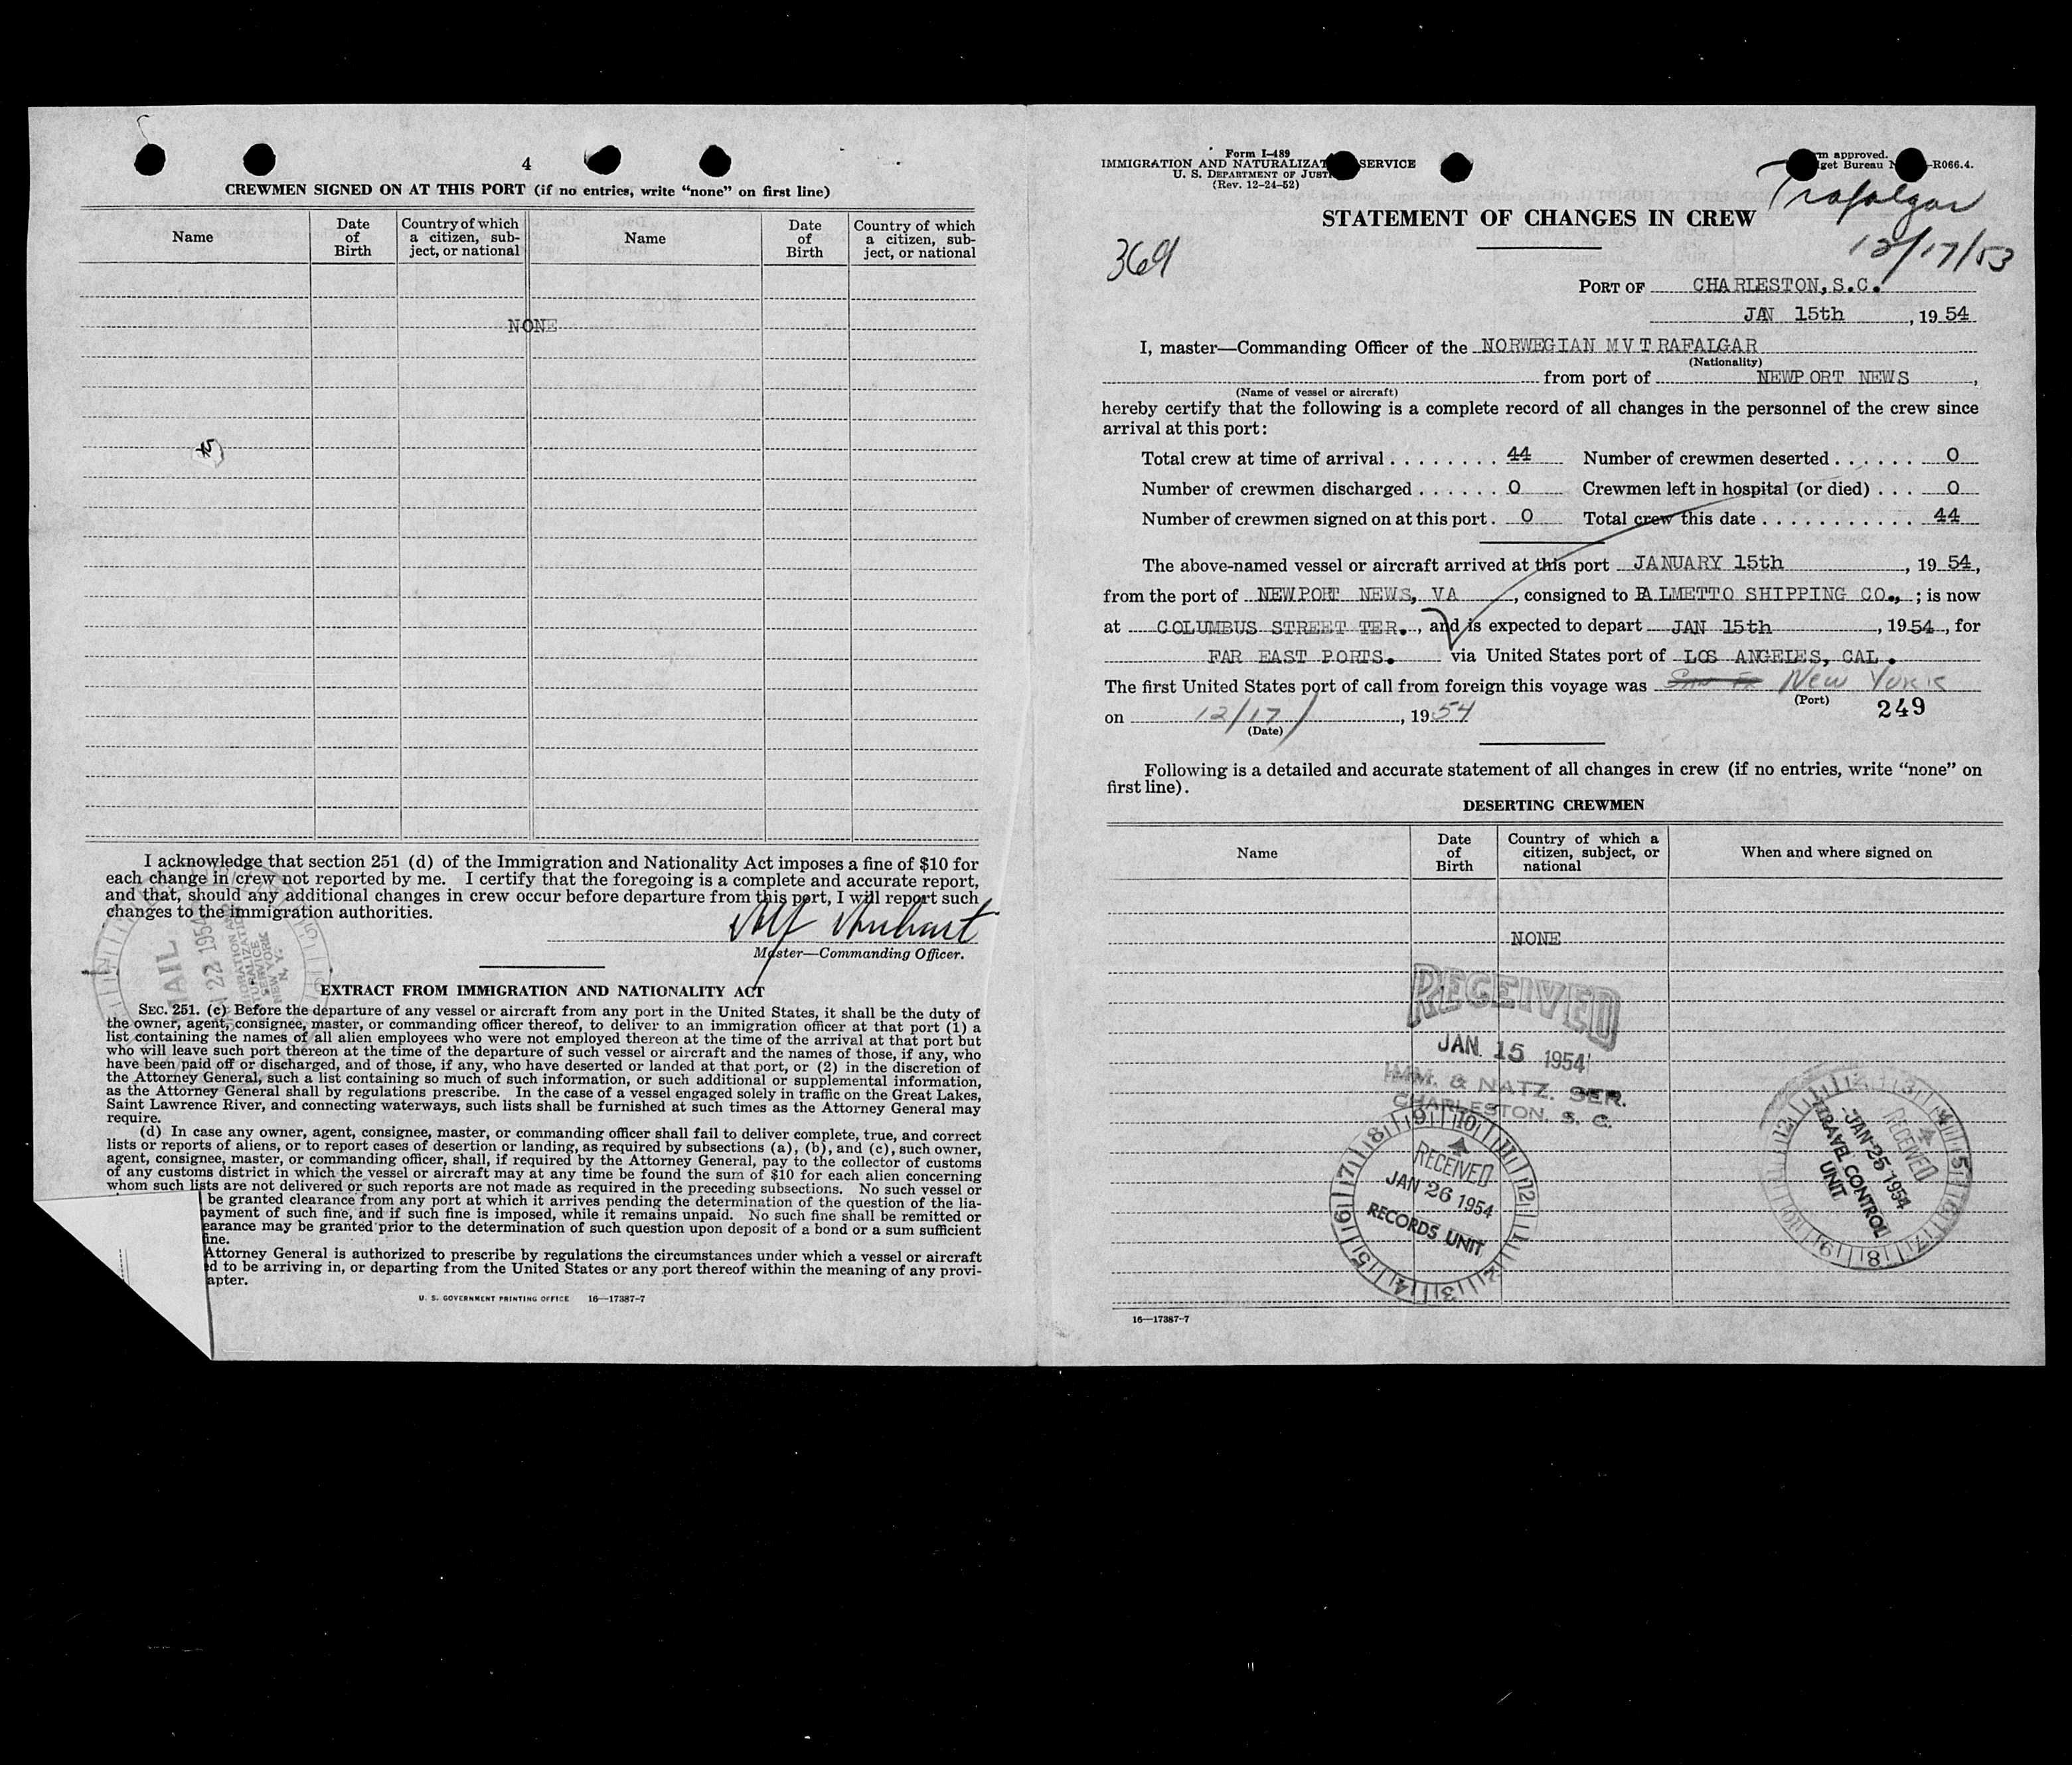 4
CREWMEN SIGNED ON AT THIS PORT (if no entries, write “none” on first line)
Name
Date of Birth
Country of which a citizen, sub-ject, or national
Name
Date of Birth
Country of which a citizen, sub-ject, or national
NONE
I acknowledge that section 251 (d) of the Immigration and Nationality Act imposes a fine of $10 for
each change in crew not reported by me. I certify that the foregoing is a complete and accurate report,
and that, should any additional changes in crew occur before departure from this port, I will report such
changes to the immigration authorities.
Master—Commanding Officer.
MAIL
22 1954
SERVICE
NEW YORK
N. Y.
EXTRACT FROM IMMIGRATION AND NATIONALITY ACT
SEC. 251. (c) Before the departure of any vessel or aircraft from any port in the United States, it shall be the duty of
the owner, agent, consignee, master, or commanding officer thereof, to deliver to an immigration officer at that port (1) a
list containing the names of all alien employees who were not employed thereon at the time of the arrival at that port but
who will leave such port thereon at the time of the departure of such vessel or aircraft and the names of those, if any, who
have been paid off or discharged, and of those, if any, who have deserted or landed at that port, or (2) in the discretion of
the Attorney General, such a list containing so much of such information, or such additional or supplemental information,
as the Attorney General shall by regulations prescribe. In the case of a vessel engaged solely in traffic on the Great Lakes,
Saint Lawrence River, and connecting waterways, such lists shall be furnished at such times as the Attorney General may
require.
(d) In case any owner, agent, consignee, master, or commanding officer shall fail to deliver complete, true, and correct
lists or reports of aliens, or to report cases of desertion or landing, as required by subsections (a), (b), and (c), such owner,
agent, consignee, master, or commanding officer, shall, if required by the Attorney General, pay to the collector of customs
of any customs district in which the vessel or aircraft may at any time be found the sum of $10 for each alien concerning
whom such lists are not delivered or such reports are not made as required in the preceding subsections. No such vessel or
be granted clearance from any port at which it arrives pending the determination of the question of the lia-
payment of such fine, and if such fine is imposed, while it remains unpaid. No such fine shall be remitted or
earance may be granted prior to the determination of such question upon deposit of a bond or a sum sufficient
fine.
Attorney General is authorized to prescribe by regulations the circumstances under which a vessel or aircraft
d to be arriving in, or departing from the United States or any port thereof within the meaning of any provi-
apter.
U. S. GOVERNMENT PRINTING OFFICE 16—17387-7
Form I-489
IMMIGRATION AND NATURALIZAT SERVICE
U. S. DEPARTMENT OF JUSTI
(Rev. 12-24-52)
m approved.
get Bureau N -R066.4.
Trafalgar
12/17/53
STATEMENT OF CHANGES IN CREW
369
PORT OF CHARLESTON, S.C.
JAN 15th, 1954
I, master—Commanding Officer of the NORWEGIAN M V TRAFALGAR
(Nationality)
from port of NEWPORT NEWS,
(Name of vessel or aircraft)
hereby certify that the following is a complete record of all changes in the personnel of the crew since
arrival at this port:
Total crew at time of arrival . . . . . . . . 44 Number of crewmen deserted . . . . . . 0
Number of crewmen discharged . . . . . . 0 Crewmen left in hospital (or died) . . . 0
Number of crewmen signed on at this port . 0 Total crew this date . . . . . . . . . . . 44
The above-named vessel or aircraft arrived at this port JANUARY 15th, 19 54,
from the port of NEWPORT NEWS, VA, consigned to PALMETTO SHIPPING CO., ; is now
at COLUMBUS STREET TER., and is expected to depart JAN 15th, 19 54, for
FAR EAST PORTS. via United States port of LOS ANGELES, CAL.
The first United States port of call from foreign this voyage was New York
(Port)
on 12/17, 19 54 249
(Date)
Following is a detailed and accurate statement of all changes in crew (if no entries, write “none” on
first line).
DESERTING CREWMEN
Name
Date of Birth
Country of which a citizen, subject, or national
When and where signed on
NONE
RECEIVED
JAN. 15 1954
IMM. & NATZ. SER.
CHARLESTON, S. C.
RECEIVED
JAN 26 1954
RECORDS UNIT
RECEIVED
JAN 25 1954
TRAVEL CONTROL
UNIT
16—17387-7